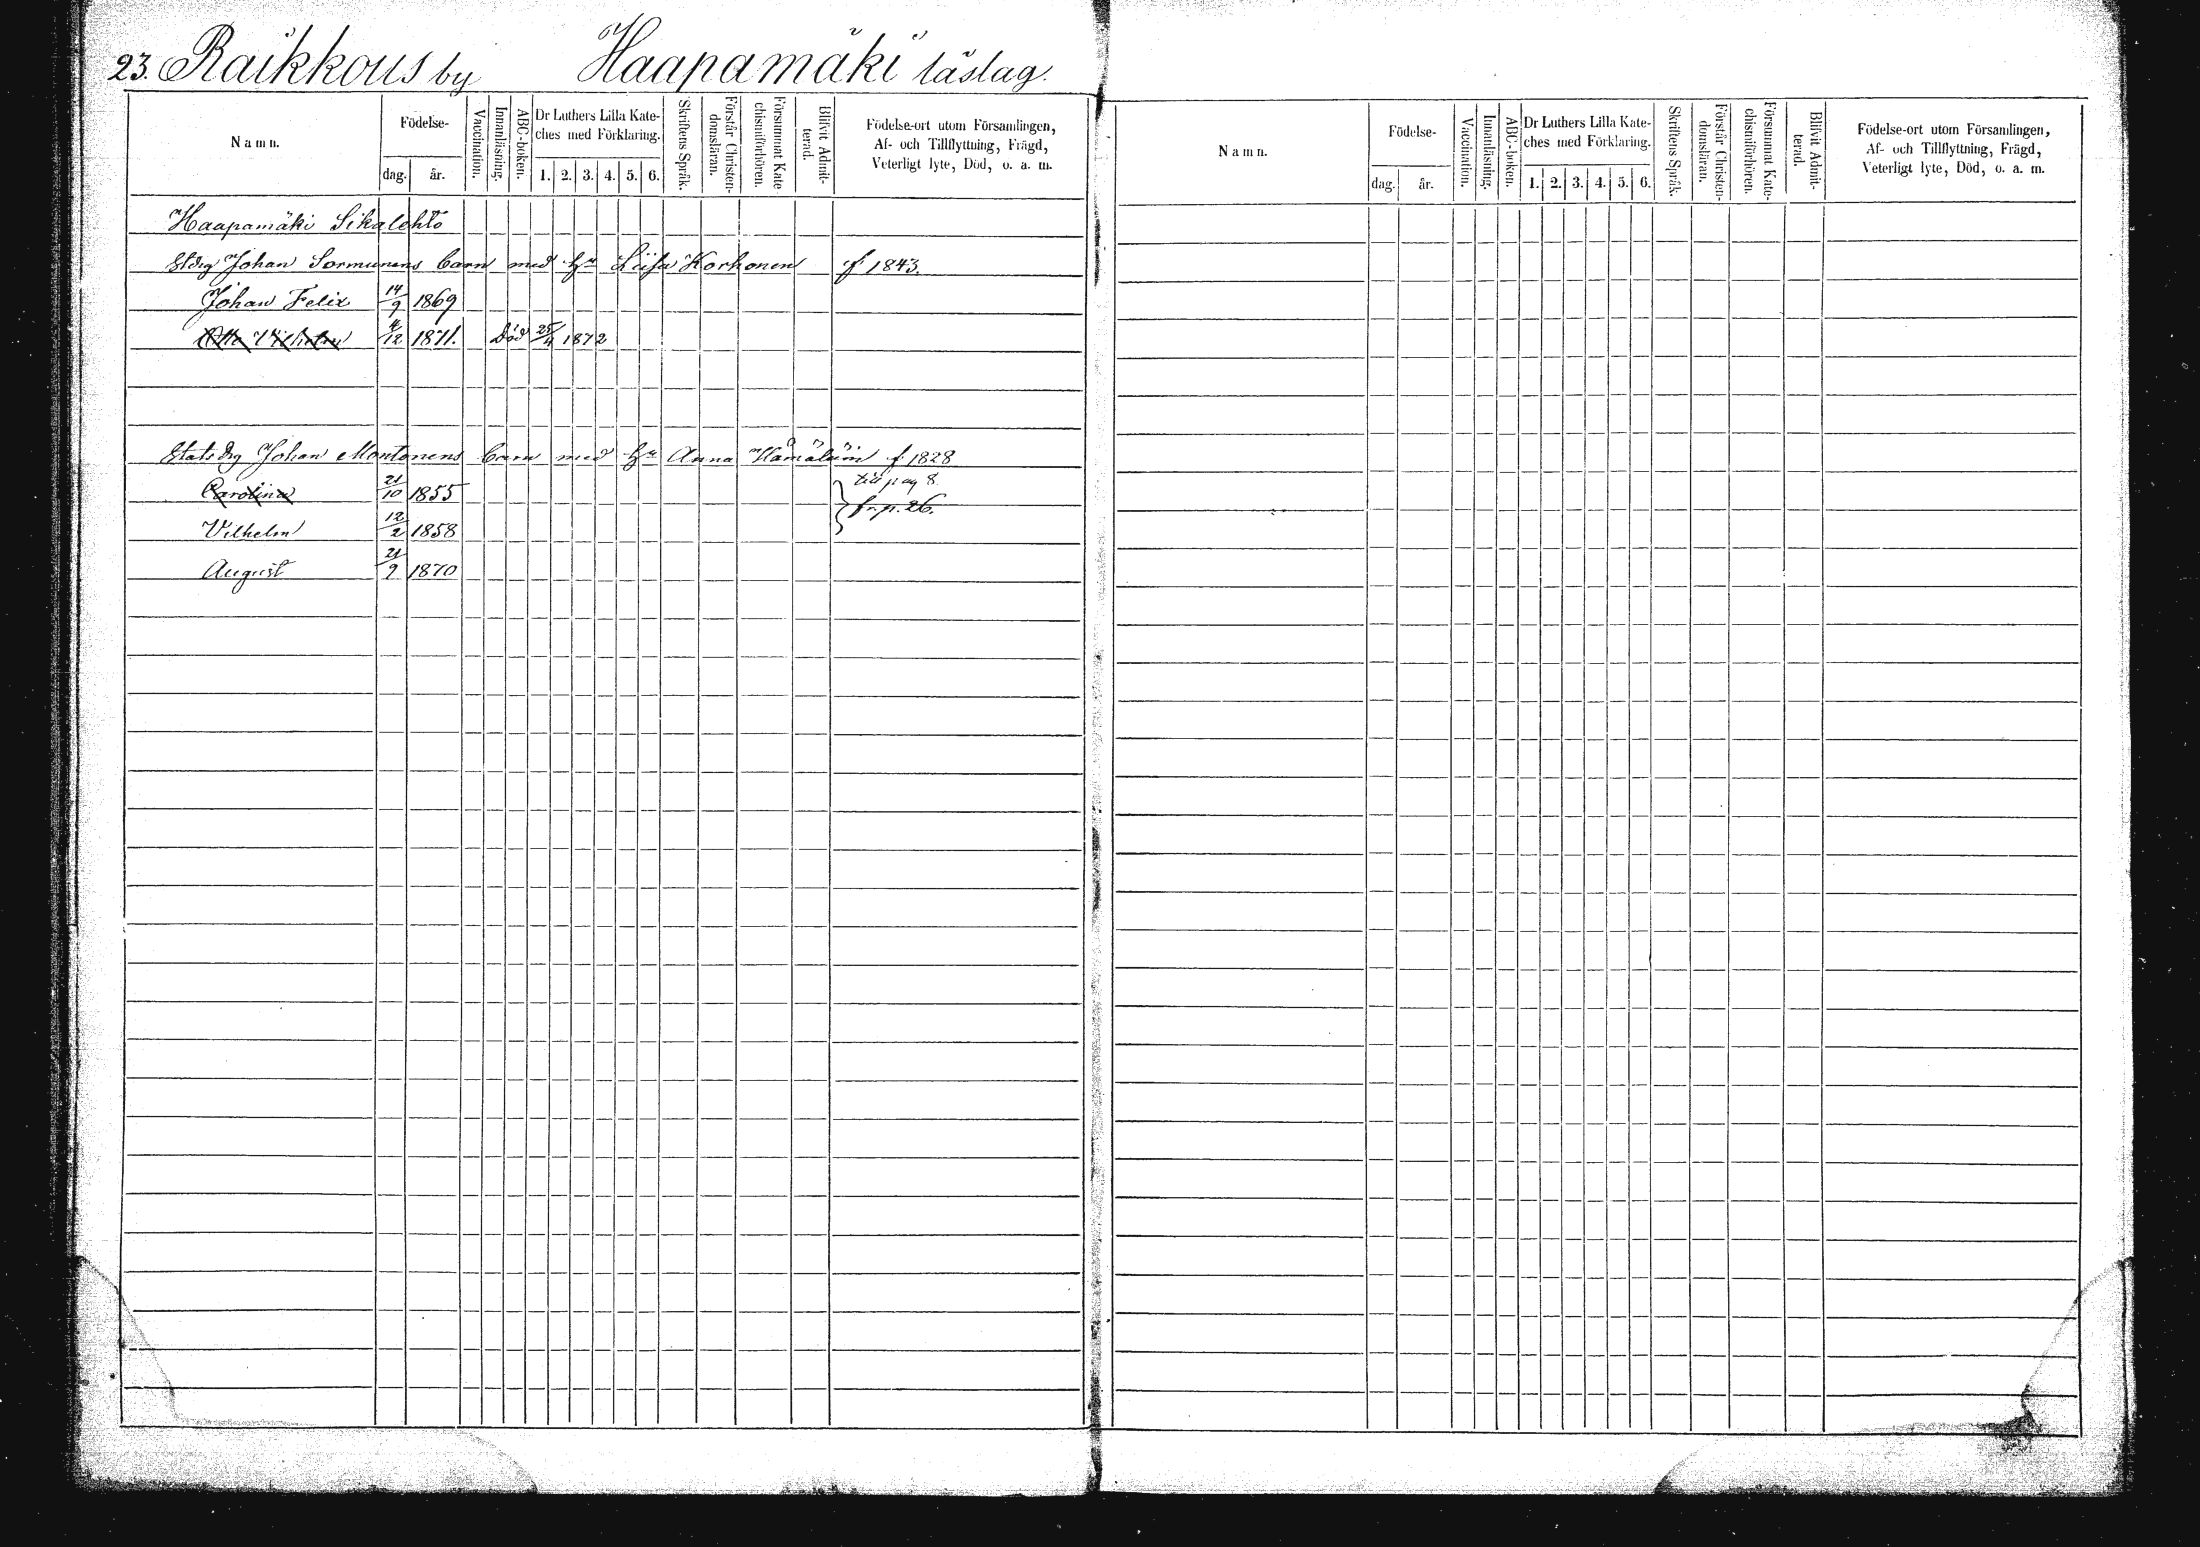 23. Raikkous by Haapamäki läslag.
Namn. Födelse- dag. år. Vaccination. Innanläsning. ABC-boken. Dr Luthers Lilla Kate-ches med Förklaring. 1. 2. 3. 4. 5. 6. Skriftens Språk. Förstår Christen-domsläran. Försummat Kate chismiförhören. Blifvit Admit-terad. Födelse-ort utom Församlingen, Af- och Tillflyttning, Frägd, Veterligt lyte, Död, o. a. m.
Haapamäki Sikalehto
Stdrg Johan Sormunens barn med h:u Liisa Korhonen f 1843.
Johan Felix 14/9 1869
Otto Vilhelm 4/12 1871. Död 25/4 1872
Stats drg Johan Montonens barn med h:u Anna Hämäläin f. 1828
Carolina 21/10 1855 till pag 8.
fr. p. 26.
Vilhelm 12/2 1858
August 21/9 1870
Namn. Födelse- dag. år. Vaccination. Innanläsning. ABC-boken. Dr Luthers Lilla Kate-ches med Förklaring. 1. 2. 3. 4. 5. 6. Skriftens Språk. Förstår Christen-domsläran. Försummat Kate-chismiförhören. Blifvit Admit-terad. Födelse-ort utom Församlingen, Af- och Tillflyttning, Frägd, Veterligt lyte, Död, o. a. m.